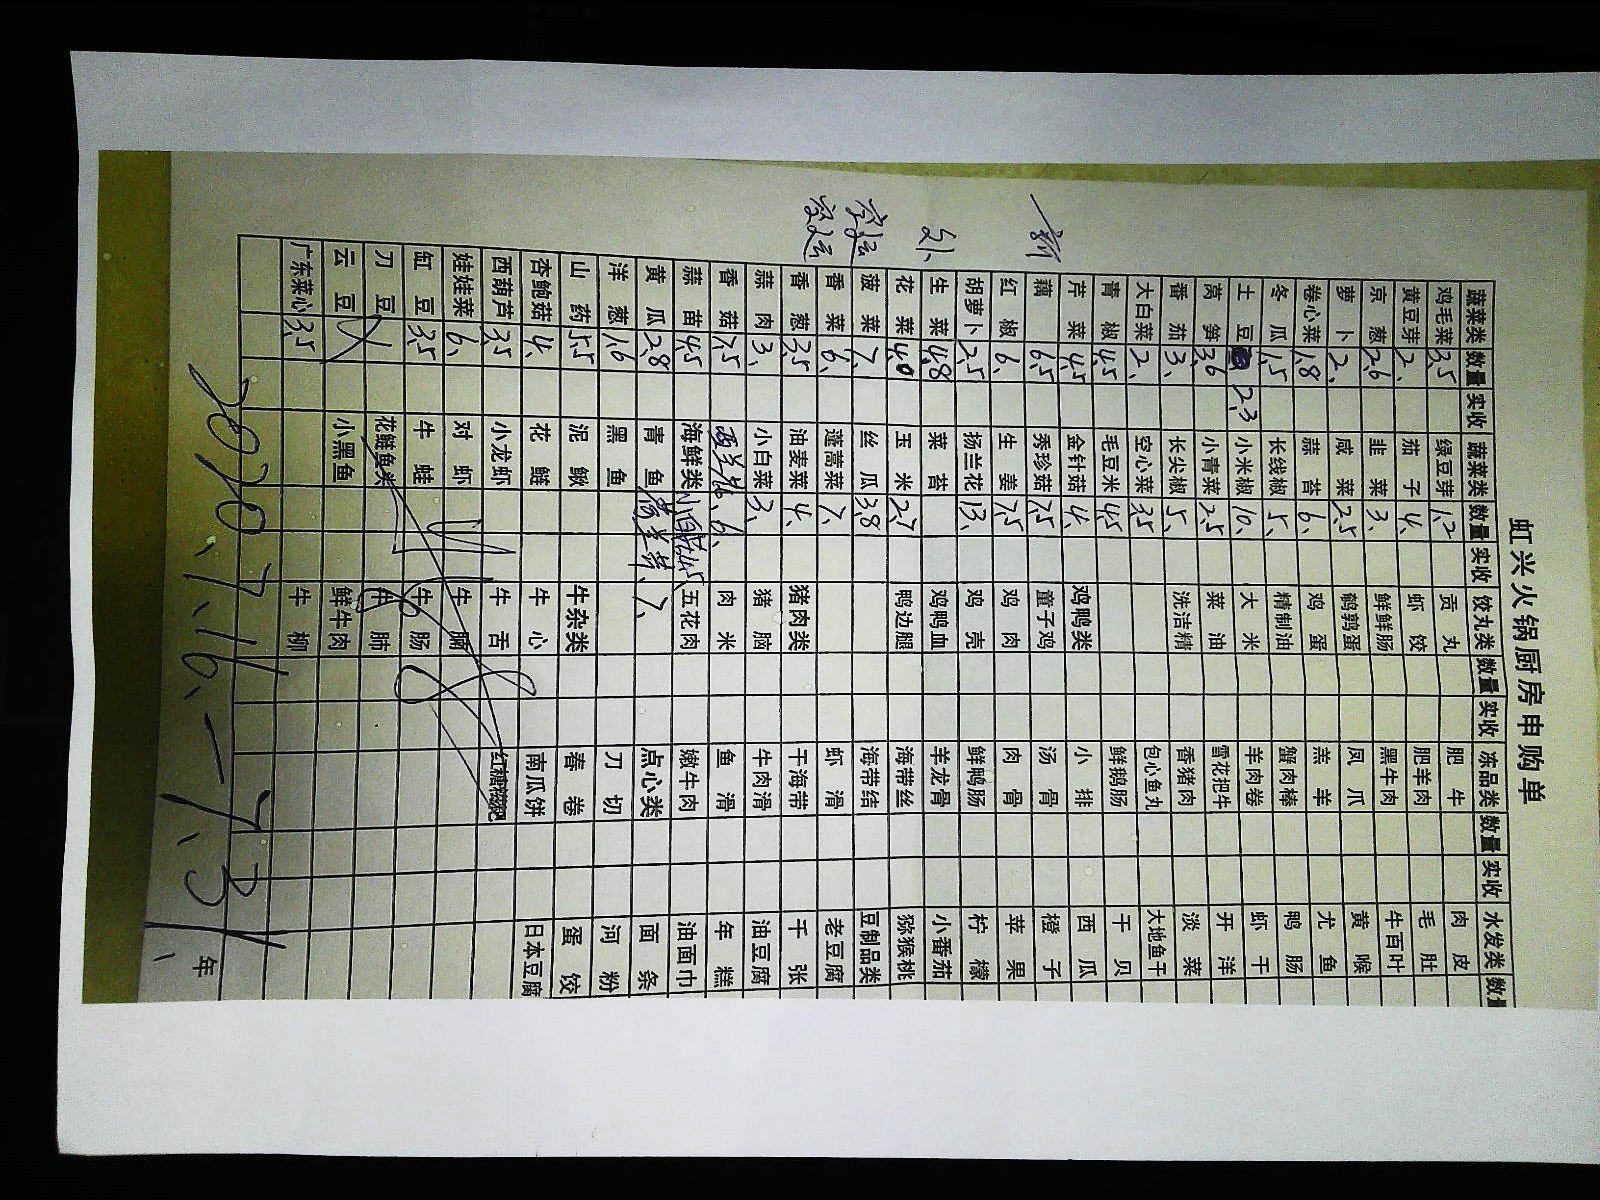 虹兴火锅厨房申购单
蔬菜类 数量 实收 蔬菜类 数量 实收 饺丸类 数量 实收 冻品类 数量 实收 水发类 数量
鸡毛菜 3.5 绿豆芽 1.2 贡丸 肥牛 肉皮
黄豆芽 2. 茄子 4. 虾饺 肥羊肉 毛肚
京葱 2.6 韭菜 3. 鲜鲜肠 黑牛肉 牛百叶
萝卜 2. 咸菜 2.5 鹌鹑蛋 凤爪 黄喉
卷心菜 1.8 蒜苔 6. 鸡蛋 羔羊 尤鱼
冬瓜 1.5 长线椒 5. 精制油 蟹肉棒 鸭肠
土豆 2.3 小米椒 10. 大米 羊肉卷 虾干
莴笋 3.6 小青菜 2.5 菜油 雪花把牛 开洋
番茄 3. 长尖椒 5. 洗洁精 香猪肉 淡菜
大白菜 2. 空心菜 3.5 包心鱼丸 大地鱼干
青椒 4.5 毛豆米 4.5 鲜鹅肠 干贝
芹菜 4.5 金针菇 4. 鸡鸭类 小排 西瓜
藕 6.5 秀珍菇 7.5 童子鸡 汤骨 橙子
红椒 6. 生姜 7.5 鸡肉 肉骨 苹果
胡萝卜 2.5 扬兰花 13. 鸡壳 鲜鸭肠 柠檬
生菜 4.8 菜苔 鸡鸭血 羊龙骨 小番茄
花菜 4.0 玉米 2.7 鸭边腿 海带丝 猕猴桃
菠菜 7. 丝瓜 3.8 海带结 豆制品类
香菜 6. 蓬蒿菜 7. 虾滑 老豆腐
香葱 3.5 油麦菜 4. 猪肉类 干海带 千张
蒜肉 3. 小白菜 3. 猪脑 牛肉滑 油豆腐
香菇 7.5 西兰花 6. 肉米 鱼滑 年糕
蒜苗 4.5 海鲜类 4.5 五花肉 嫩牛肉 油面巾
黄瓜 2.8 青鱼 7. 点心类 面条
洋葱 1.6 黑鱼 刀切 河粉
山药 5.5 泥鳅 牛杂类 春卷 蛋饺
杏鲍菇 4. 花鲢 牛心 南瓜饼 日本豆腐
西葫芦 3.5 小龙虾 牛舌 红糖糍粑
娃娃菜 6. 对虾 牛腩
缸豆 3.5 牛蛙 牛肠
刀豆 花鲢鱼头 牛肺
云豆 小黑鱼 鲜牛肉
广东菜心 3.5 牛柳
2020.7.16.—7.31
年